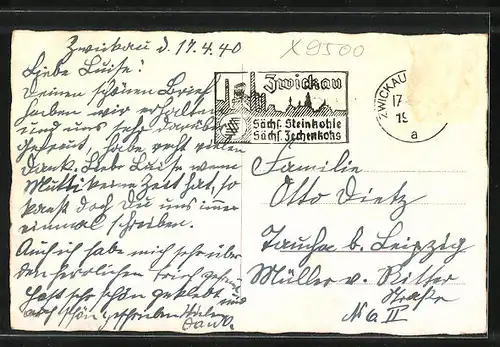 Zwickau d. 17.4.40
X9500
Liebe Luise!
Deinen schönen Brief
haben wir erhalten
und uns sehr darüber
gefreut, habe recht vielen
Dank. Liebe Luise wenn
Mutti keine Zeit hat, so
kannst doch Du uns immer
einmal schreiben.
Auch ich habe mich sehr über
den herrlichen
Hast sehr schön geklebt und
auch schön geschrieben Vielen
Dank.
Zwickau
Sächs. Steinkohle
Sächs. Zechenkoks
ZWICKAU
17
19
a
Familie
Otto Dietz
Taucha b. Leipzig
Müller v. Ritter
Straße
No 6 II